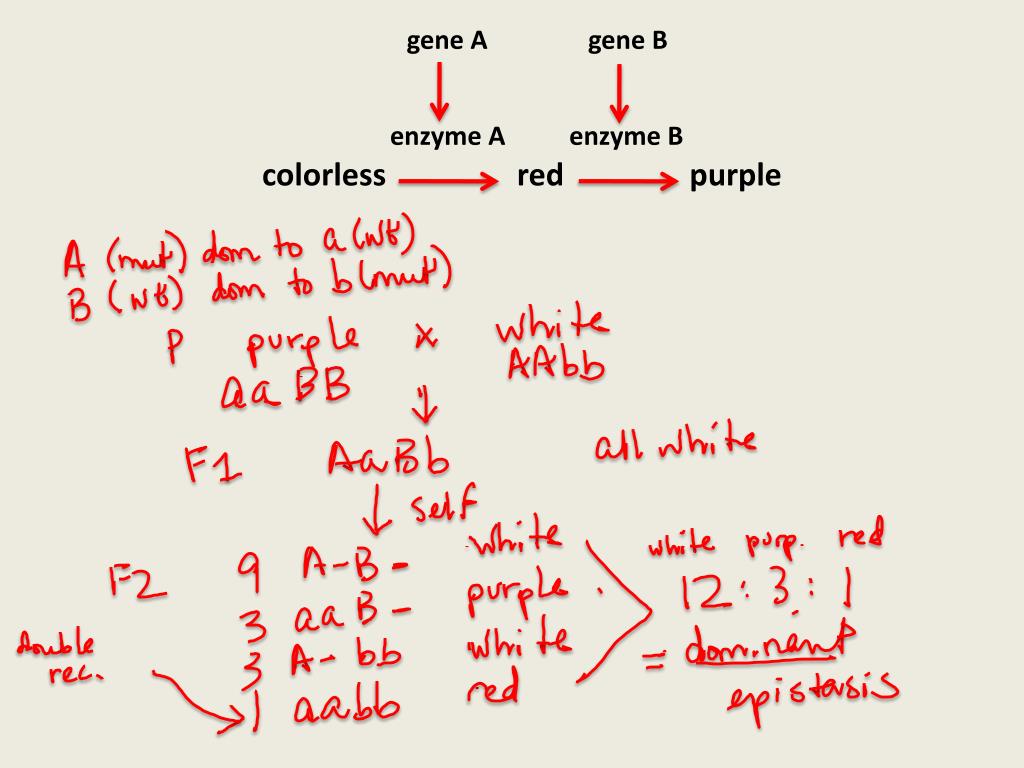 gene A gene B
enzyme A enzyme B
colorless red purple
A (mut) dom to a (wt)
B (wt) dom to b (mut)
P purple x white
aaBB AAbb
F1 AaBb all white
self
F2 9 A-B- white
3 aaB- purple
3 A- bb white
1 aabb red
double
rec.
white purp. red
12 : 3 : 1
= dominant
epistasis